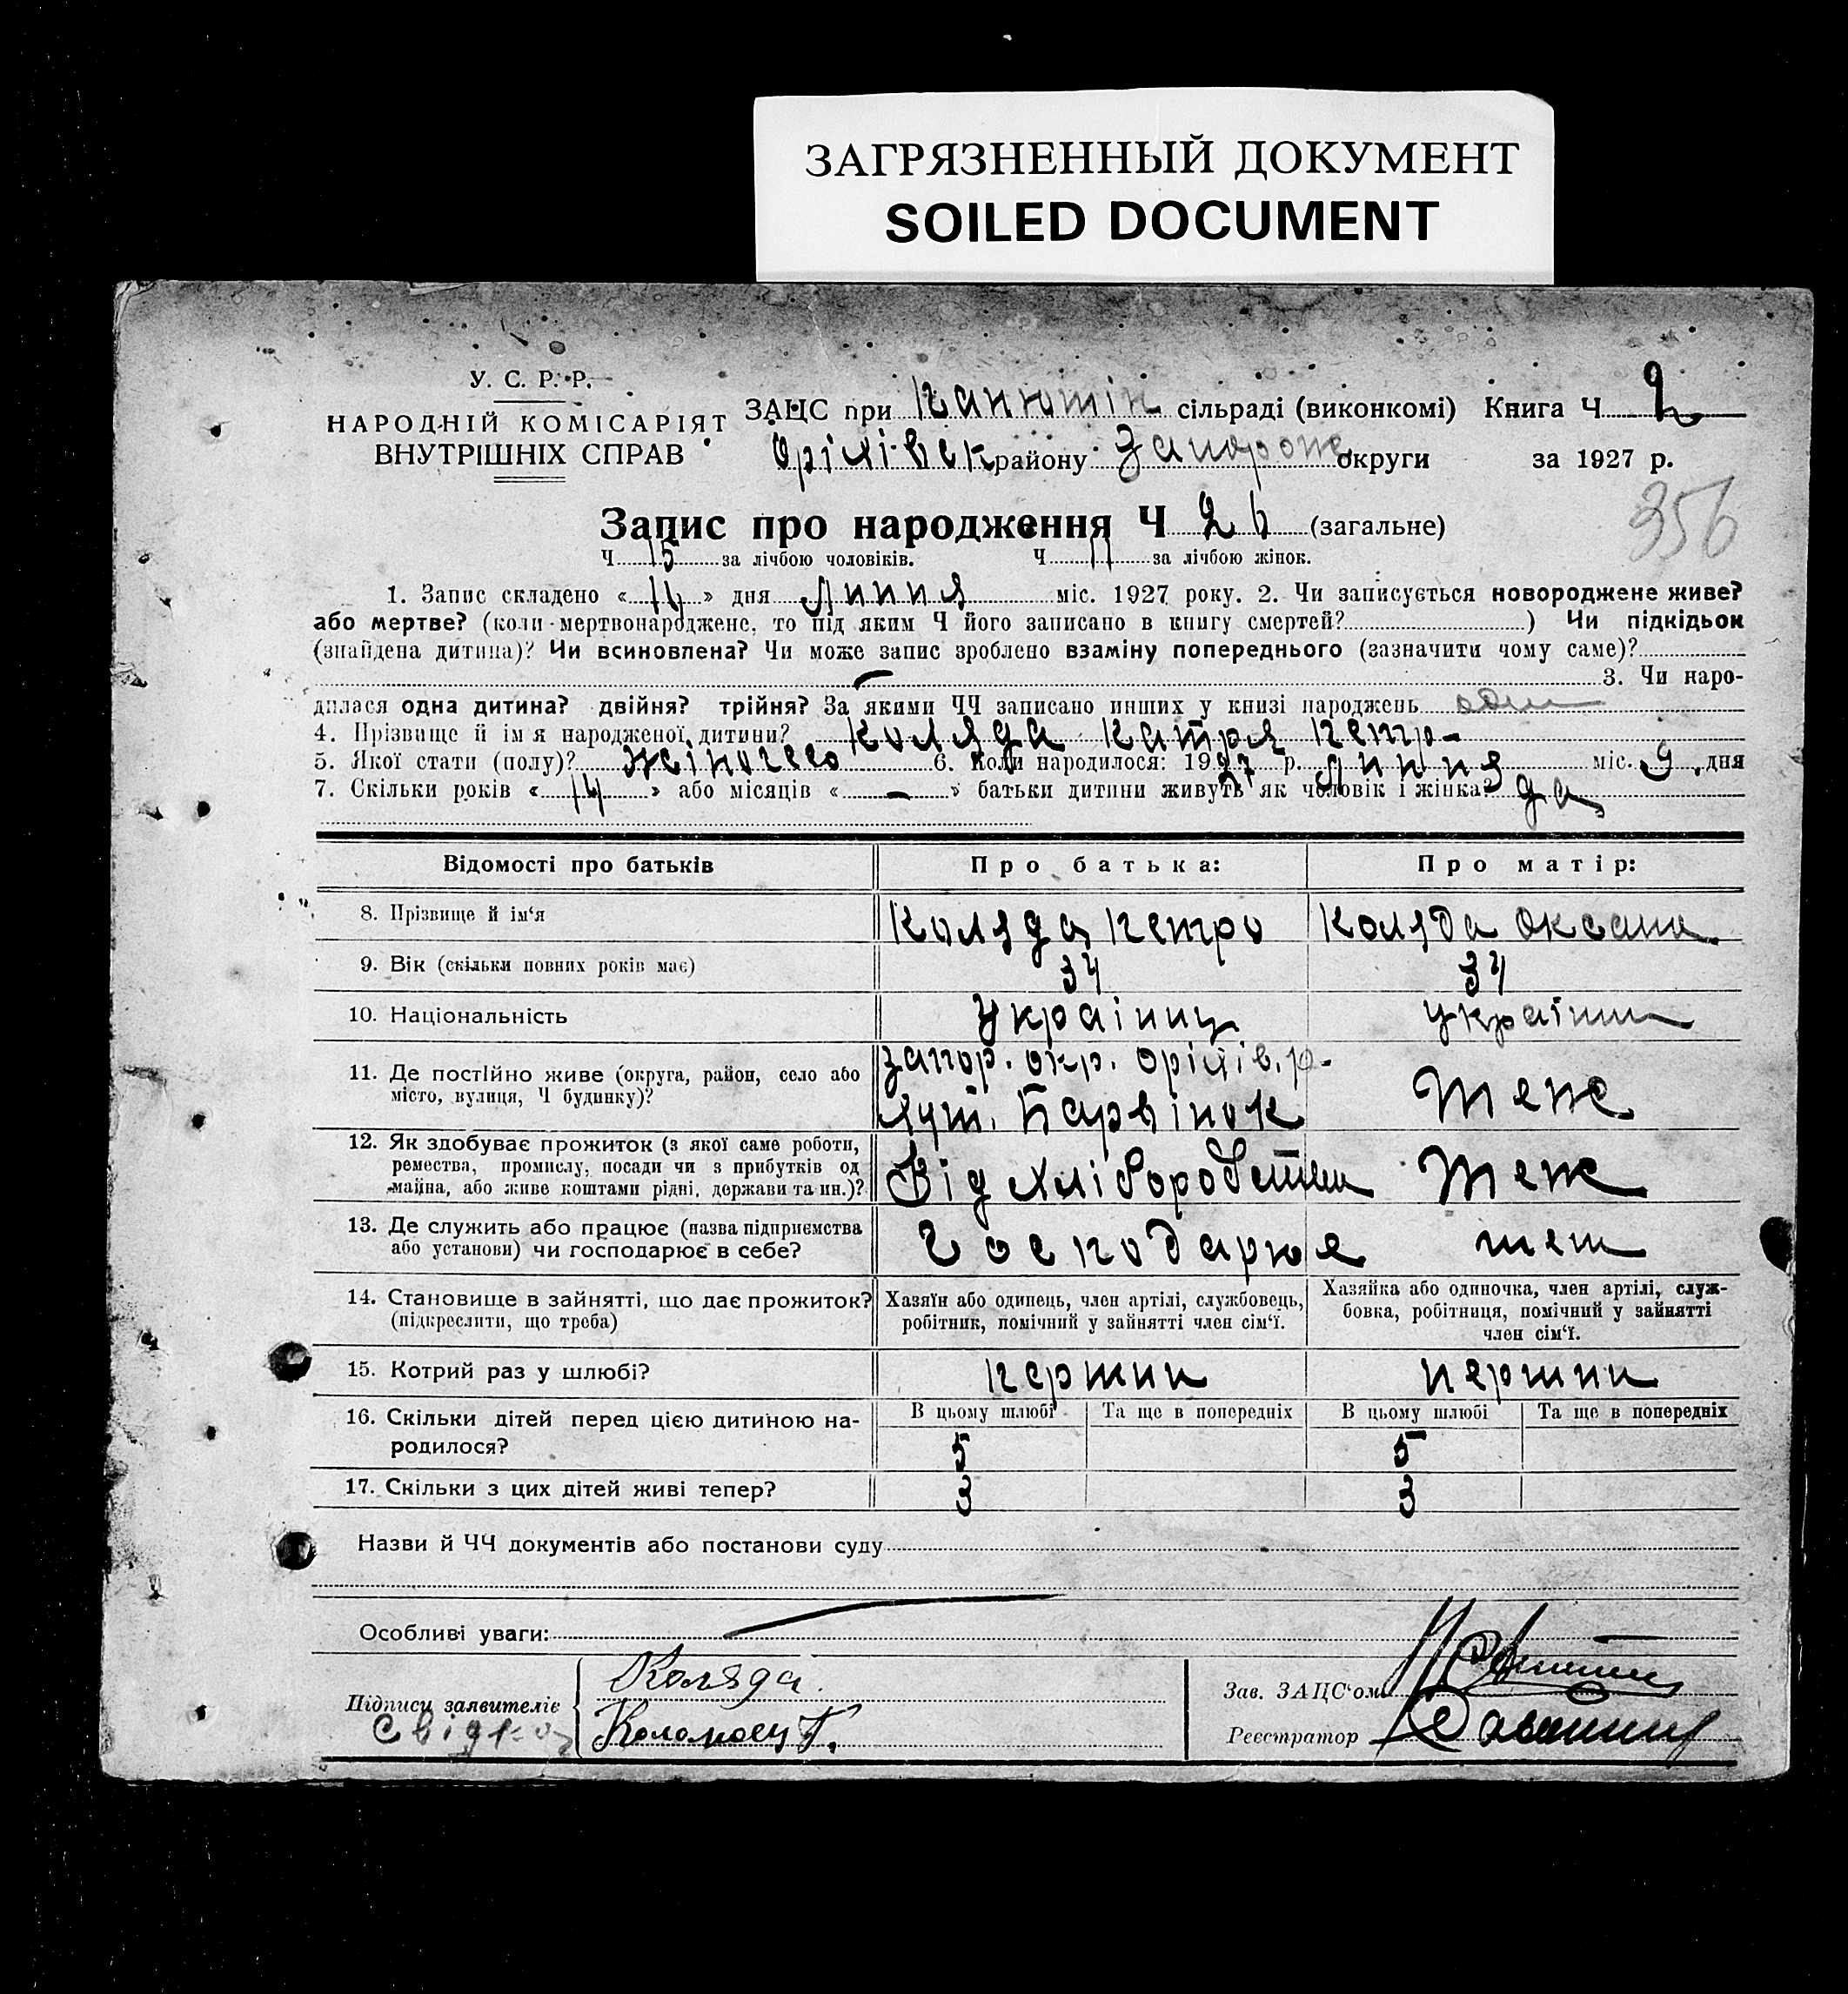 ЗАГРЯЗНЕННЫЙ ДОКУМЕНТ
SOILED DOCUMENT
У. С. Р. Р.
НАРОДНІЙ КОМІСАРІЯТ
ВНУТРІШНІХ СПРАВ
ЗАЦС при Канютін сільраді (виконкомі) Книга Ч 2
Оріхівск району Запорож округи за 1927 р.
356
Запис про народження Ч 26 (загальне)
Ч 15 за лічбою чоловіків. Ч 11 за лічбою жінок.
1. Запис складено « 14 » дня Липня міс. 1927 року. 2. Чи записується новороджене живе?
або мертве? (коли мертвонароджене, то під яким Ч його записано в книгу смертей? ) Чи підкідьок
(знайдена дитина)? Чи всиновлена? Чи може запис зроблено взаміну попереднього (зазначити чому саме)?
3. Чи наро-
дилася одна дитина? двійня? трійня? За якими ЧЧ записано инших у книзі народжень
4. Прізвище й ім'я народженої дитини? Коляда Катря Петр-
5. Якої стати (полу)? жіночего 6. Коли народилося: 1927 р. Липня міс. 9 дня
7. Скільки років « 14 » або місяців « — » батьки дитини живуть як чоловік і жінка? да
Відомості про батьків Про батька: Про матір:
8. Прізвище й ім'я Коляда Петро Коляда Оксана
9. Вік (скільки повних років має) 34 34
10. Національність Українц українк
11. Де постійно живе (округа, район, село або Запор. окр. Оріхів. р-
місто, вулиця, Ч будинку)? хут. Барвінок Теж
12. Як здобуває прожиток (з якої саме роботи,
ремества, промислу, посади чи з прибутків од Від хліборобства Теж
майна, або живе коштами рідні, держави та ин.)?
13. Де служить або працює (назва підприємства Господарює теж
або установи) чи господарює в себе?
14. Становище в зайнятті, що дає прожиток? Хазяїн або одинець, член артілі, службовець, Хазяйка або одиночка, член артілі, служ-
(підкреслити, що треба) робітник, помічний у зайнятті член сім'ї. бовка, робітниця, помічний у зайнятті
член сім'ї.
15. Котрий раз у шлюбі? перший перший
16. Скільки дітей перед цією дитиною на- В цьому шлюбі Та ще в попередніх В цьому шлюбі Та ще в попередніх
родилося? 5 5
17. Скільки з цих дітей живі тепер? 3 3
Назви й ЧЧ документів або постанови суду
Особливі уваги:
Підписи заявителів Коляда. Зав. ЗАЦС'ом
Коломоец Г. Реєстратор